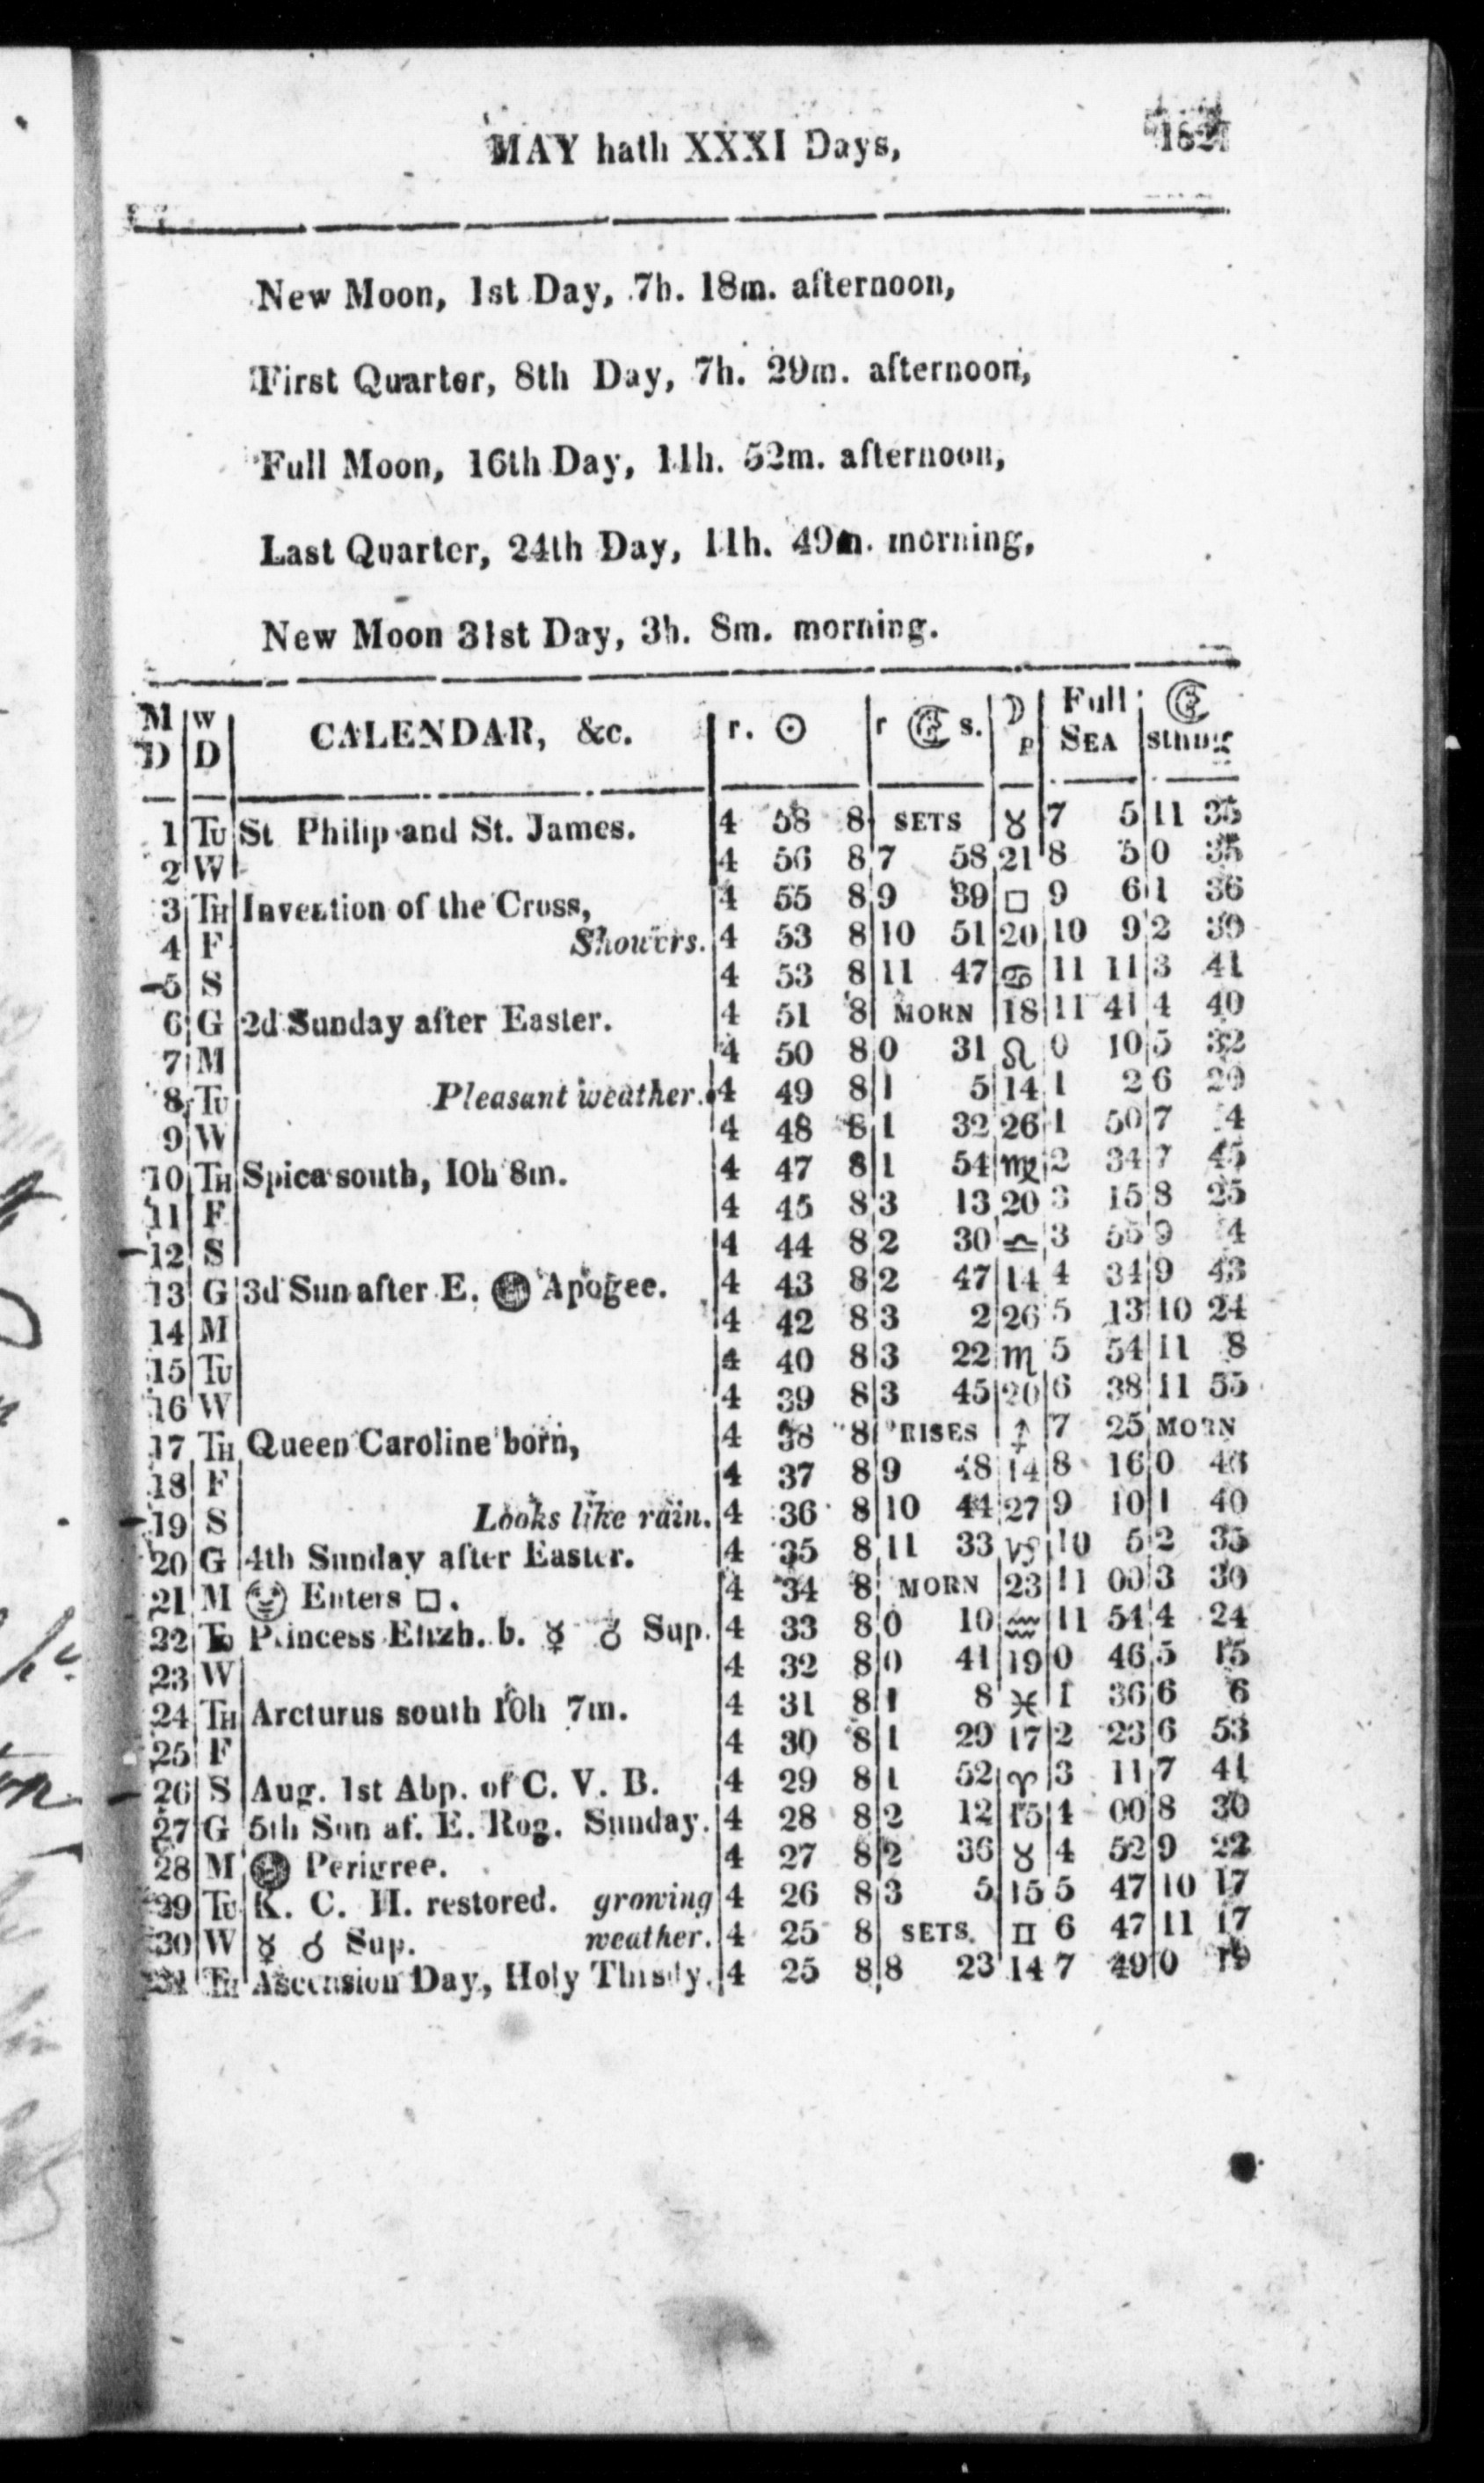 MAY hath XXXI Days, 1821
New Moon, 1st Day, 7h. 18m. afternoon,
First Quarter, 8th Day, 7h. 29m. afternoon,
Full Moon, 16th Day, 11h. 52m. afternoon,
Last Quarter, 24th Day, 11h. 49m. morning,
New Moon 31st Day, 3h. 8m. morning.
M D W D CALENDAR, &c. r. ☉ r s. ☽ p Full SEA sthng
1 TU St Philip and St. James. 4 58 8 SETS ♉ 7 5 11 35
2 W 4 56 8 7 58 21 8 5 0 35
3 TH Invention of the Cross, 4 55 8 9 39 □ 9 6 1 36
4 F Showers. 4 53 8 10 51 20 10 9 2 39
5 S 4 53 8 11 47 ♋ 11 11 3 41
6 G 2d Sunday after Easter. 4 51 8 MORN 18 11 41 4 40
7 M 4 50 8 0 31 ♌ 0 10 5 32
8 TU Pleasant weather. 4 49 8 1 5 14 1 2 6 20
9 W 4 48 8 1 32 26 1 50 7 4
10 TH Spica south, 10h 8m. 4 47 8 1 54 ♍ 2 34 7 45
11 F 4 45 8 3 13 20 3 15 8 25
12 S 4 44 8 2 30 ♎ 3 55 9 4
13 G 3d Sun after E. Apogee. 4 43 8 2 47 14 4 34 9 43
14 M 4 42 8 3 2 26 5 13 10 24
15 TU 4 40 8 3 22 ♏ 5 54 11 8
16 W 4 39 8 3 45 20 6 38 11 55
17 TH Queen Caroline born, 4 38 8 RISES ♐ 7 25 MORN
18 F 4 37 8 9 48 14 8 16 0 46
19 S Looks like rain. 4 36 8 10 44 27 9 10 1 40
20 G 4th Sunday after Easter. 4 35 8 11 33 ♑ 10 5 2 35
21 M Enters □. 4 34 8 MORN 23 11 00 3 30
22 TU Princess Elizh. b. ☿ ☌ Sup. 4 33 8 0 10 ♒ 11 54 4 24
23 W 4 32 8 0 41 19 0 46 5 15
24 TH Arcturus south 10h 7m. 4 31 8 1 8 ♓ 1 36 6 6
25 F 4 30 8 1 29 17 2 23 6 53
26 S Aug. 1st Abp. of C. V. B. 4 29 8 1 52 ♈ 3 11 7 41
27 G 5th Sun af. E. Rog. Sunday. 4 28 8 2 12 15 4 00 8 30
28 M Perigree. 4 27 8 2 36 ♉ 4 52 9 22
29 TU K. C. II. restored. growing 4 26 8 3 5 15 5 47 10 17
30 W ☿ ☌ Sup. weather. 4 25 8 SETS. ♊ 6 47 11 17
31 TH Ascension Day, Holy Thisdy. 4 25 8 8 23 14 7 49 0 19